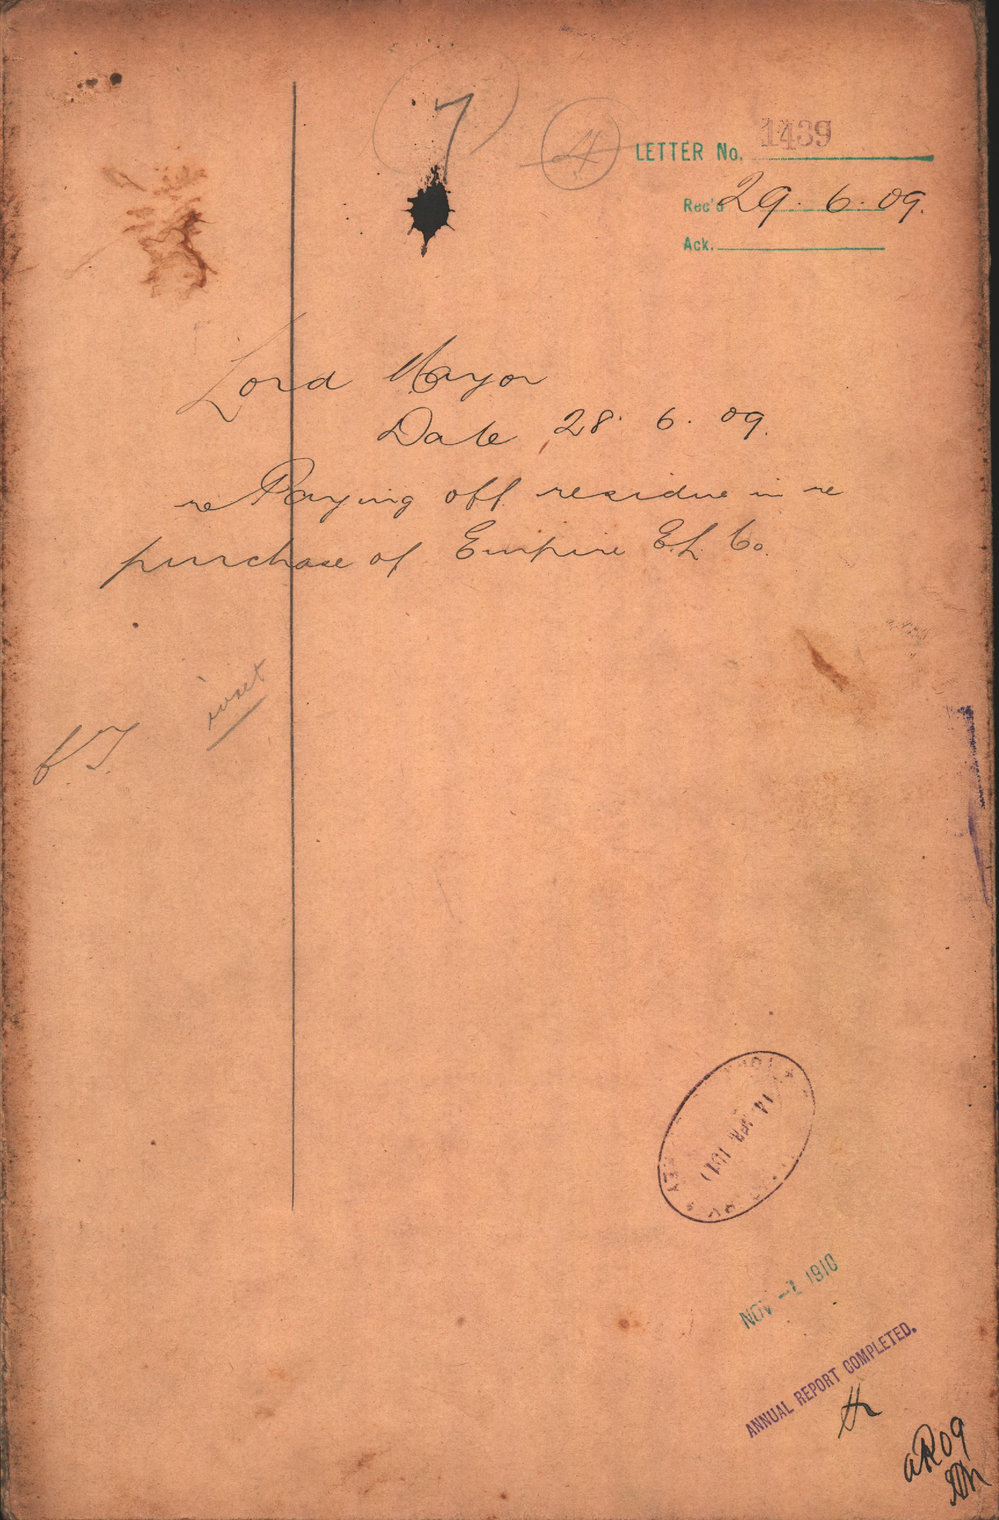 7
4
LETTER No. 1439
Rec'd 29. 6. 09.
Ack.
Lord Mayor
Date 28. 6. 09.
re Paying off residue in re
purchase of Empire E.L. Co.
14 APR
NOV 1910
ANNUAL REPORT COMPLETED.
aR09